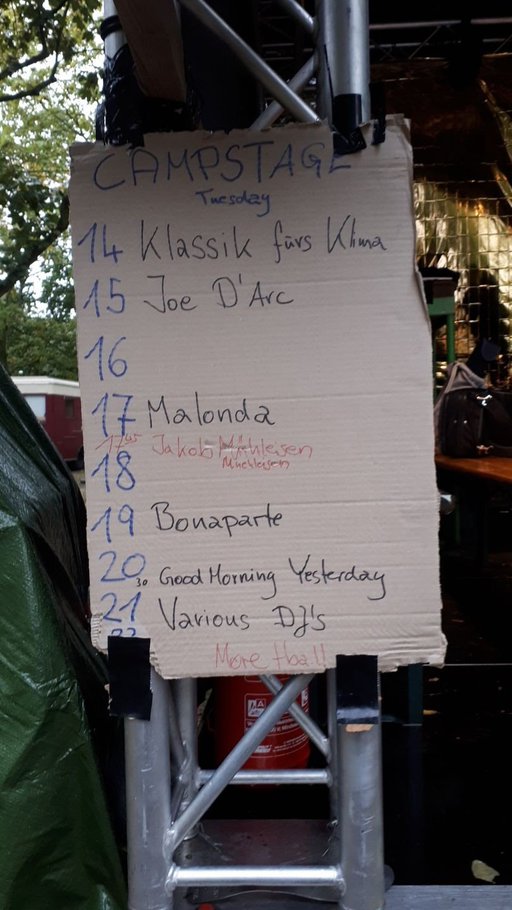 CAMPSTAGE
Tuesday
14 Klassik fürs Klima
15 Joe D'Arc
16
17 Malonda
17 45 Jakob Mühleisen
Muehleisen
18
19 Bonaparte
20 30 Good Morning Yesterday
21 Various DJ's
22